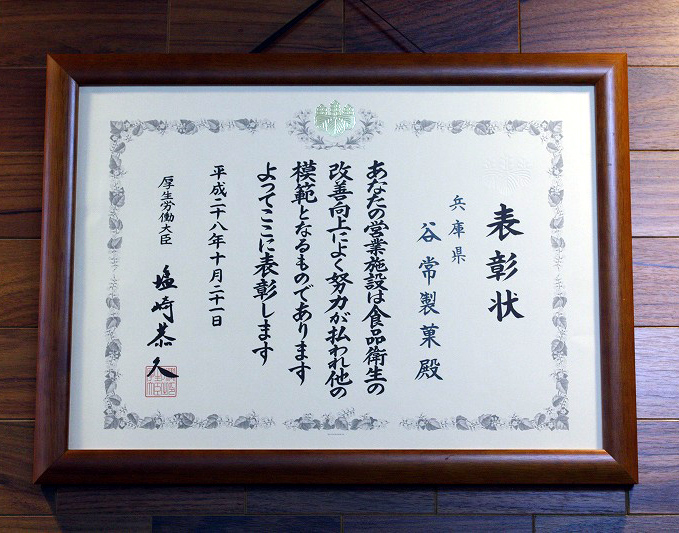 表彰状
兵庫県
谷常製菓殿
あなたの営業施設は食品衛生の
改善向上によく努力が払われ他の
模範となるものであります
よってここに表彰します
平成二十八年十月二十一日
厚生労働大臣
塩崎恭久